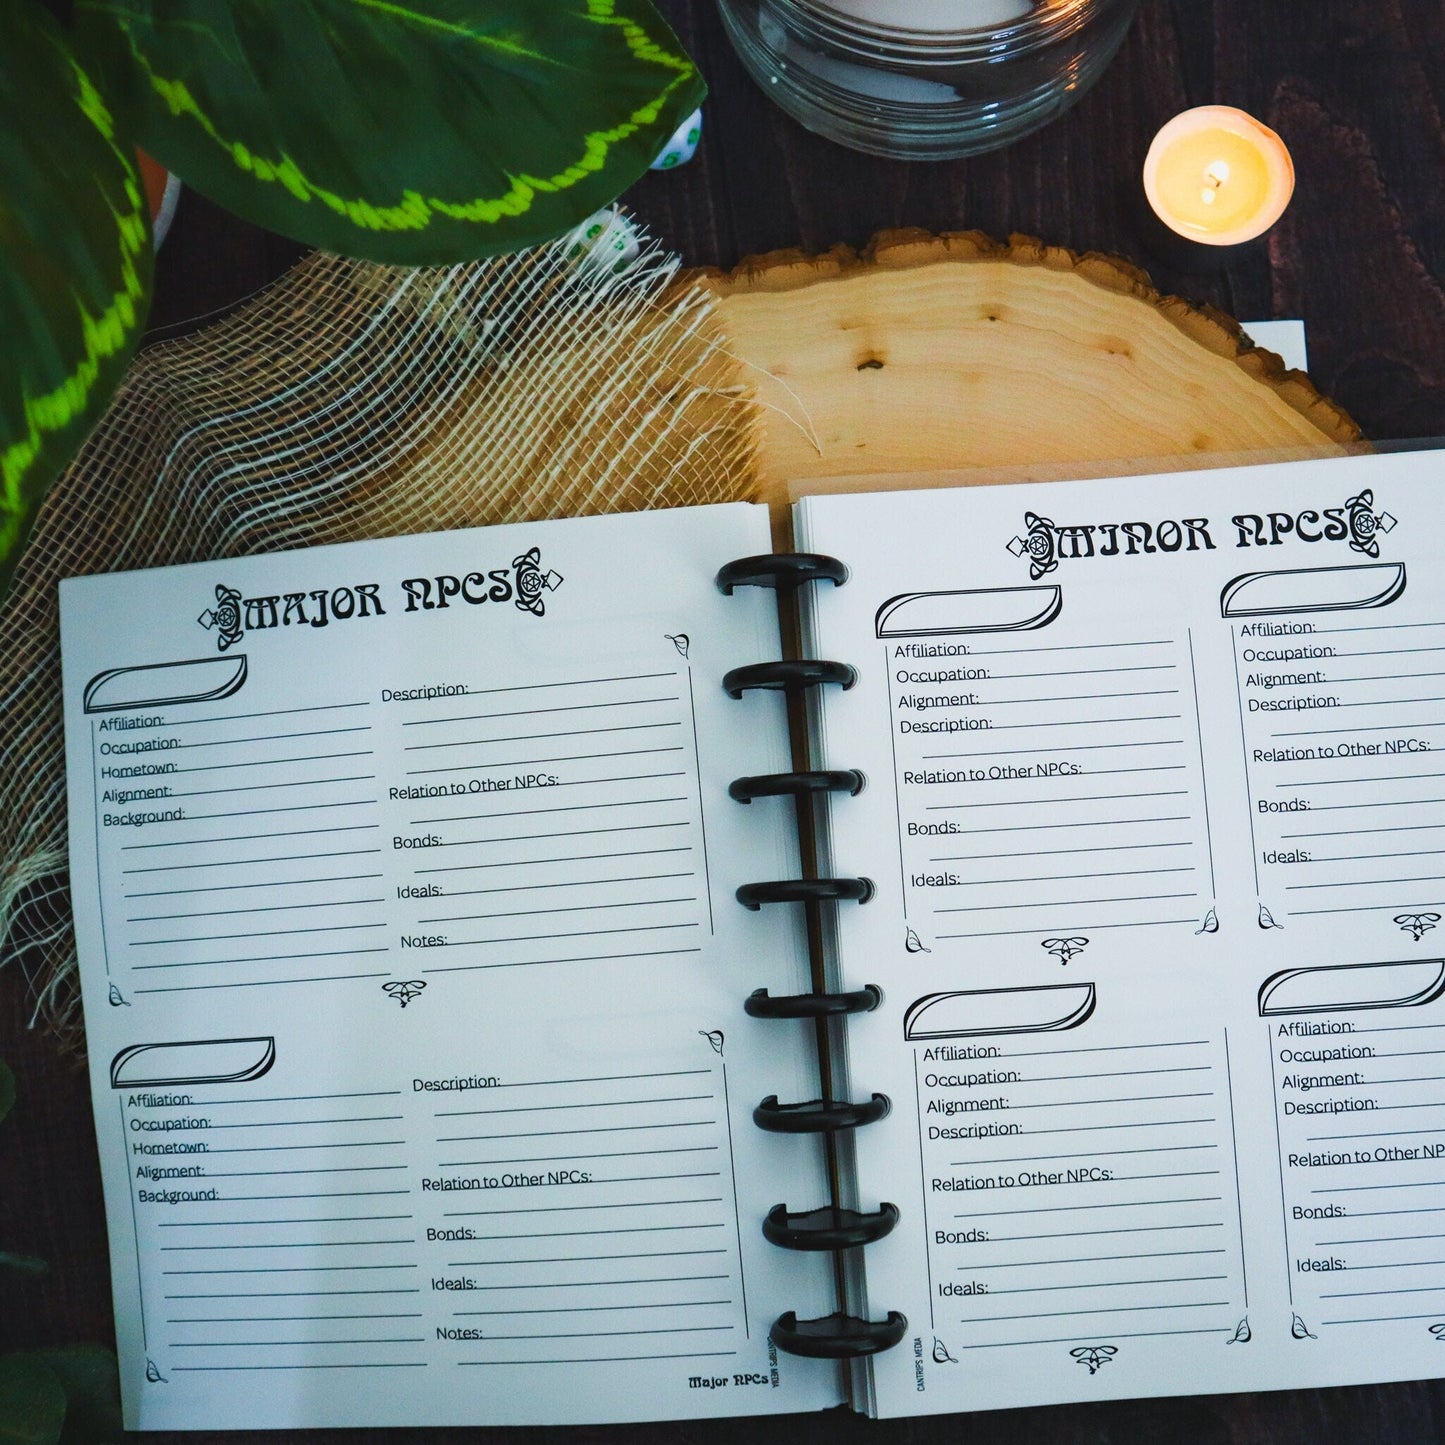 MAJOR NPCS
Affiliation:
Occupation:
Hometown:
Alignment:
Background:
Description:
Relation to Other NPCs:
Bonds:
Ideals:
Notes:
Affiliation:
Occupation:
Hometown:
Alignment:
Background:
Description:
Relation to Other NPCs:
Bonds:
Ideals:
Notes:
Major NPCs
CANTRIPS MEDIA
MINOR NPCS
Affiliation:
Occupation:
Alignment:
Description:
Relation to Other NPCs:
Bonds:
Ideals:
Affiliation:
Occupation:
Alignment:
Description:
Relation to Other NPCs:
Bonds:
Ideals:
Affiliation:
Occupation:
Alignment:
Description:
Relation to Other NPCs:
Bonds:
Ideals:
Affiliation:
Occupation:
Alignment:
Description:
Relation to Other NP
Bonds:
Ideals:
CANTRIPS MEDIA